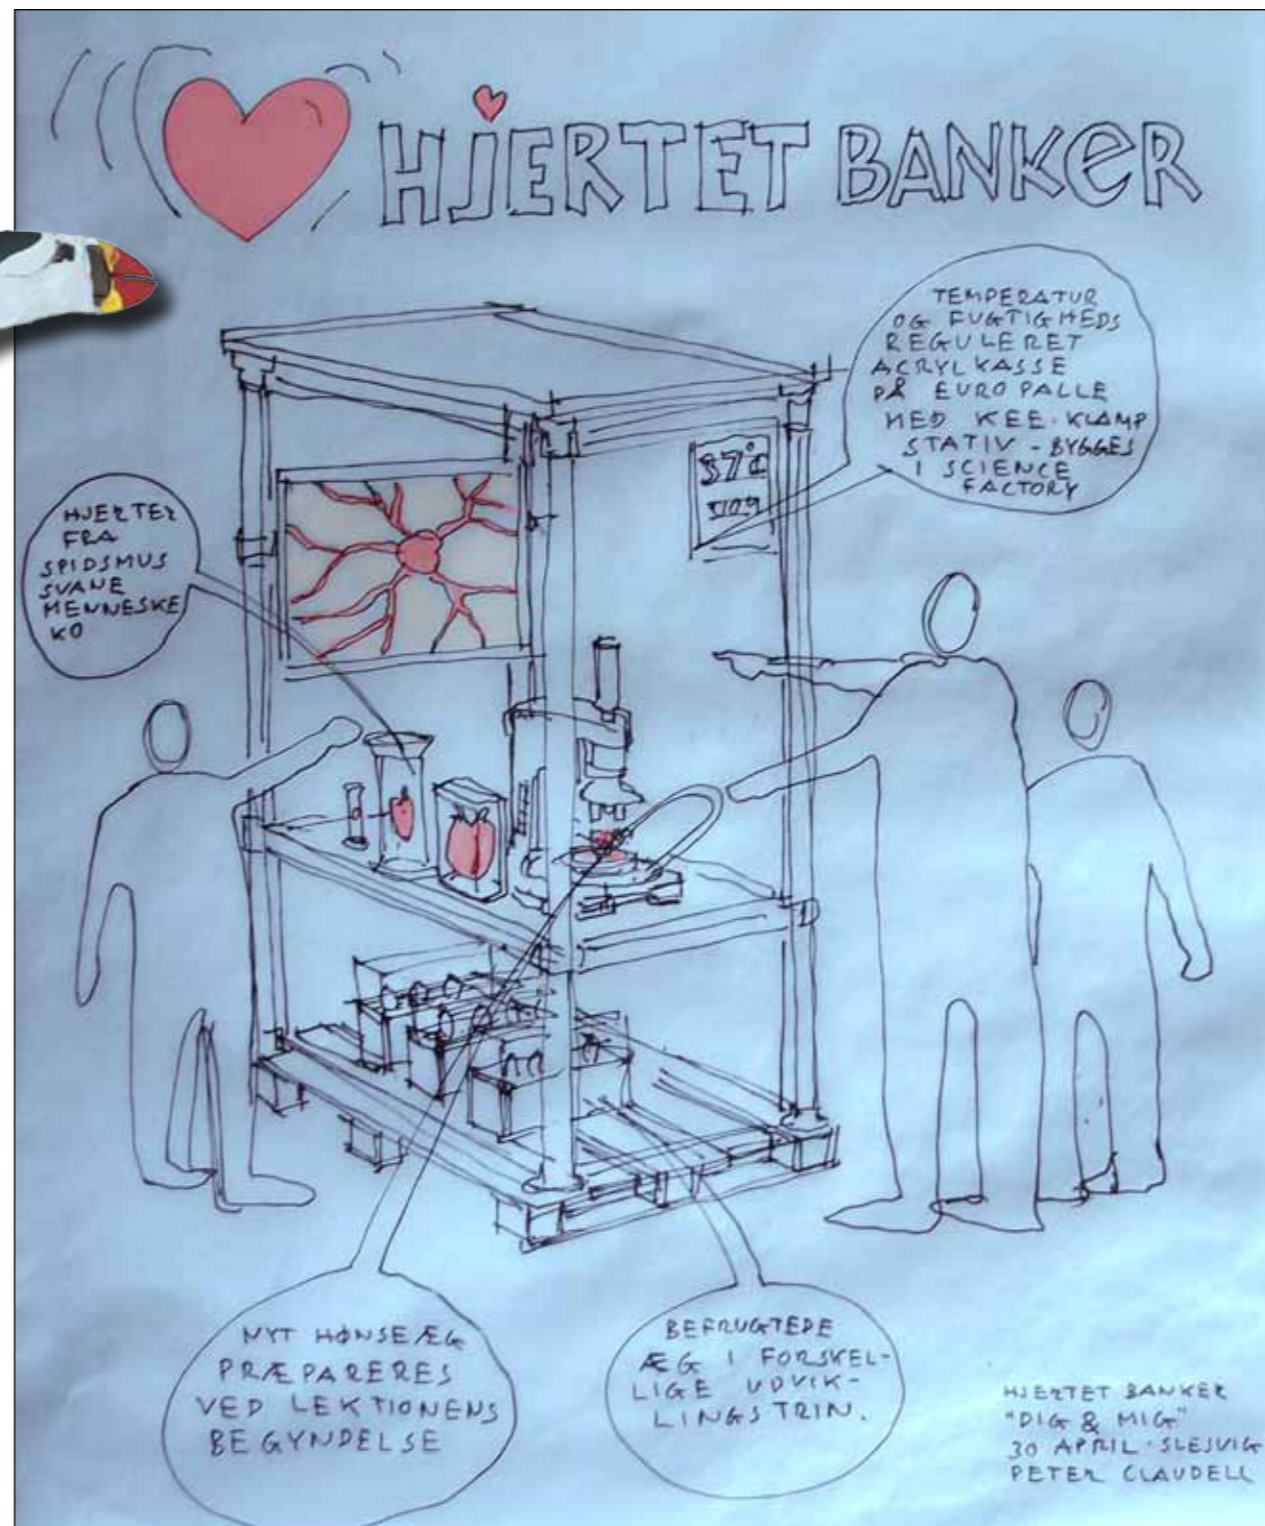 HJERTET BANKER
TEMPERATUR
OG FUGTIGHEDS
REGULERET
ACRYLKASSE
PÅ EUROPALLE
MED KEE-KLAMP
STATIV - BYGGES
I SCIENCE
FACTORY
37°C
HJERTER
FRA
SPIDSMUS
SVANE
MENNESKE
KO
NYT HØNSEÆG
PRÆPARERES
VED LEKTIONENS
BEGYNDELSE
BEFRUGTEDE
ÆG I FORSKEL-
LIGE UDVIK-
LINGSTRIN.
HJERTET BANKER
"DIG & MIG"
30 APRIL · SLESVIG
PETER CLAUDELL